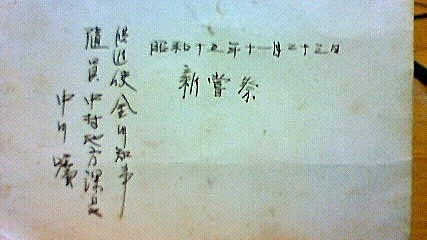 昭和十五年十一月二十三日
新嘗祭
供進使 金川知事
随員 中村地方課長
中川